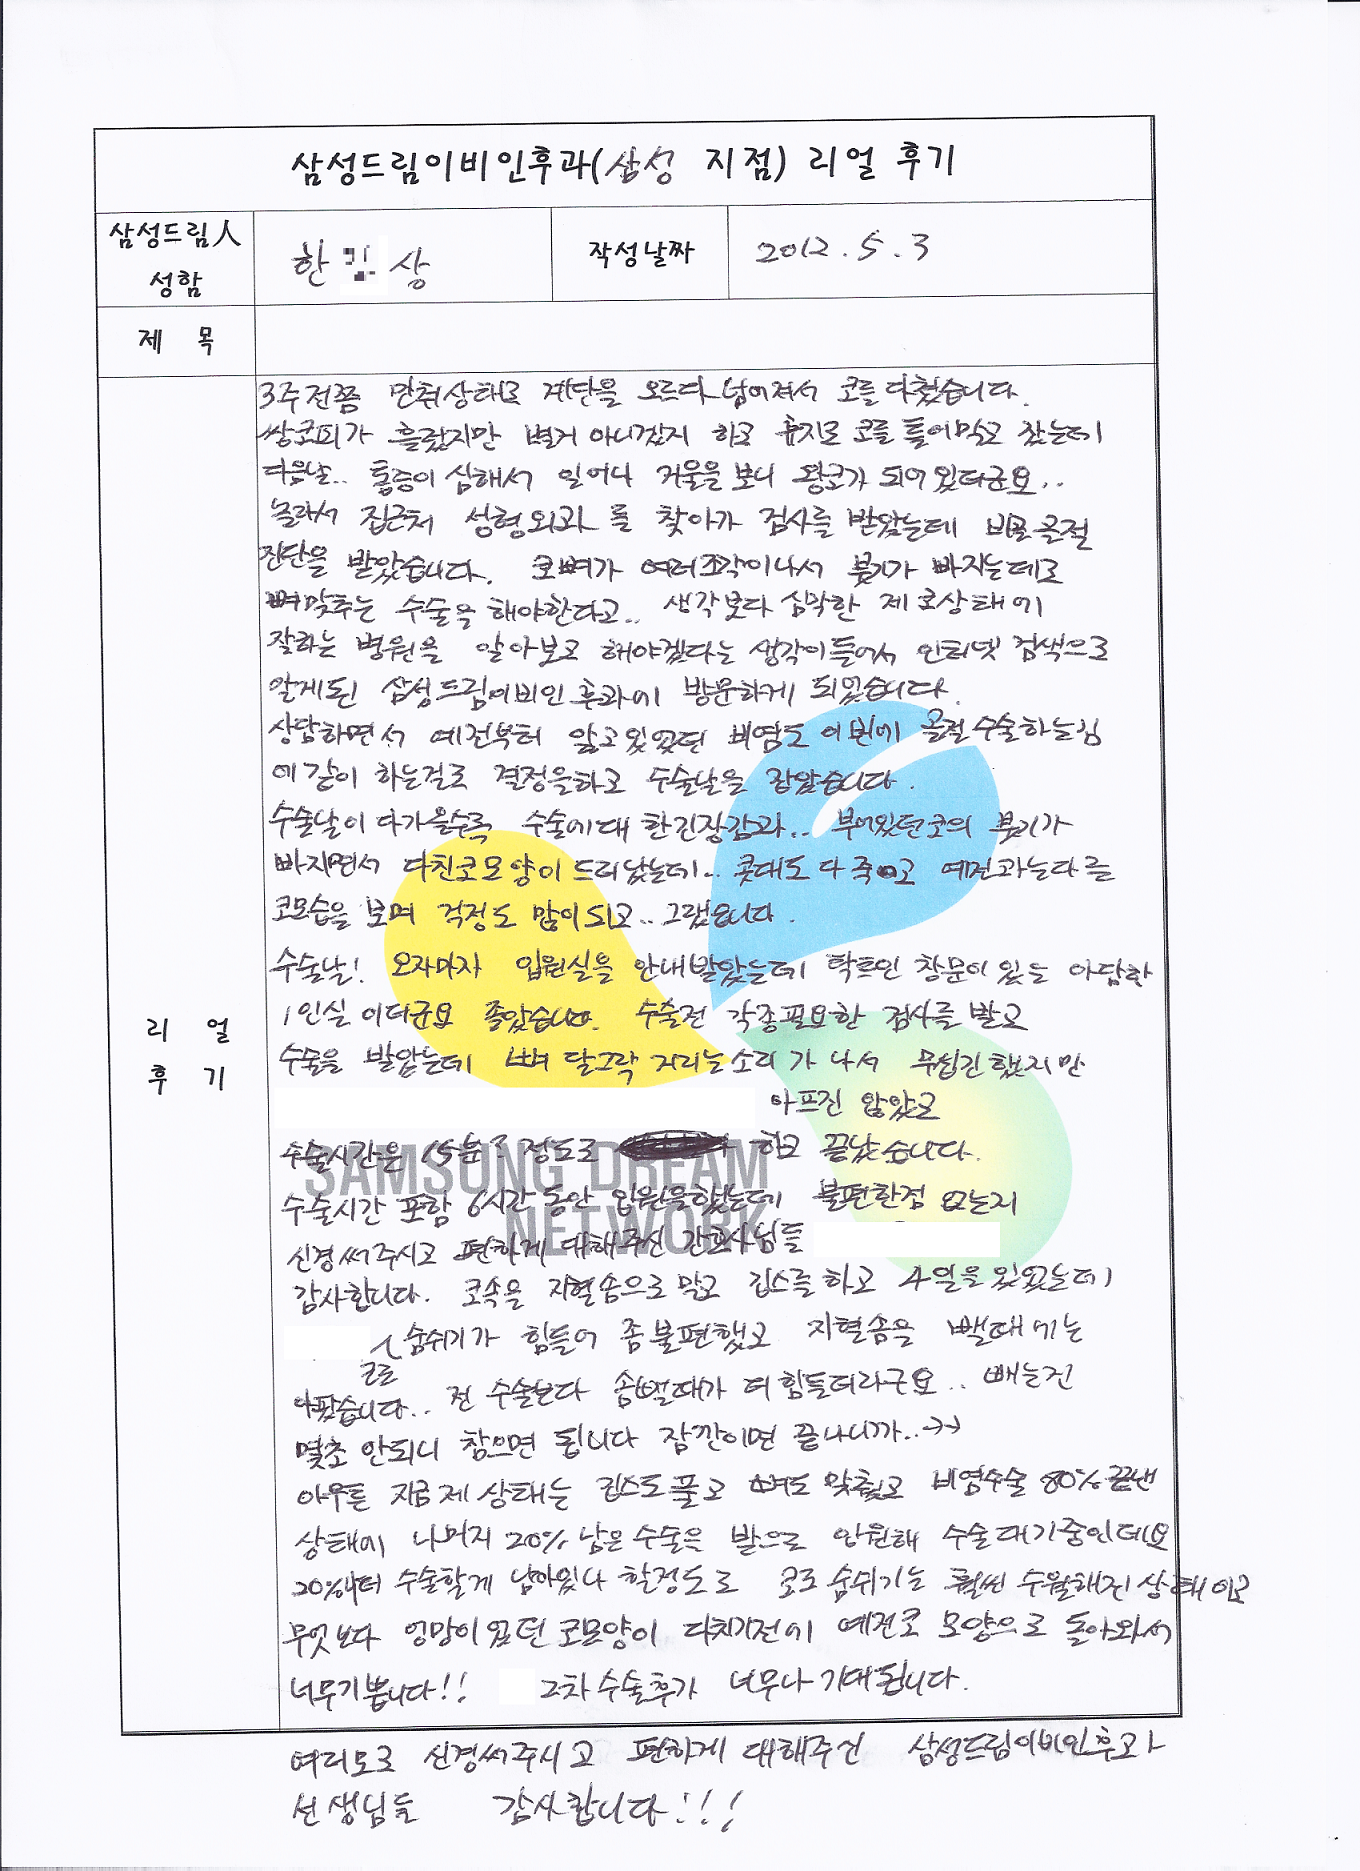 삼성드림이비인후과(삼성 지점) 리얼 후기
삼성드림人
성함
한 상
작성날짜
2012.5.3
제 목
리 얼
후 기
3주전쯤 만취상태로 계단을 오르다 넘어져서 코를 다쳤습니다.
쌍코피가 흘렀지만 별거 아니겠지 하고 휴지로 코를 틀어막고 잤는데
다음날.. 통증이 심해서 일어나 거울을 보니 왕코가 되어 있더군요..
놀라서 집근처 성형외과를 찾아가 검사를 받았는데 비골골절
진단을 받았습니다. 코뼈가 여러조각이나서 붓기가 빠지는데로
뼈맞추는 수술을 해야한다고.. 생각보다 심각한 제 코상태에
잘하는 병원을 알아보고 해야겠다는 생각이들어서 인터넷 검색으로
알게된 삼성드림이비인후과에 방문하게 되었습니다.
상담하면서 예전부터 앓고있었던 비염도 이번에 골절수술하는김
에 같이 하는걸로 결정을하고 수술날을 잡았습니다.
수술날이 다가올수록 수술에대한긴장감과.. 부어있던코의 붓기가
빠지면서 다친코모양이 드러났는데.. 콧대도 다 죽고 예전과는다른
코모습을 보며 걱정도 많이되고.. 그랬습니다.
수술날! 오자마자 입원실을 안내받았는데 탁트인 창문이 있는 아담한
1인실 이더군요 좋았습니다. 수술전 각종필요한 검사를 받고
수술을 받았는데 뼈 달그락 거리는소리가 나서 무섭긴했지만
아프진 않았고
수술시간은 15분? 정도로 하고 끝났습니다.
수술시간 포함 6시간 동안 입원을했는데 불편한점 없는지
신경써주시고 편하게 대해주신 간호사님들
감사합니다. 코속을 지혈솜으로 막고 깁스를 하고 4일을 있었는데
코로 숨쉬기가 힘들어 좀 불편했고 지혈솜을 뺄때에는
아팠습니다.. 전 수술보다 솜뺄때가 더 힘들더라구요.. 빼는건
몇초 안되니 참으면 됩니다 잠깐이면 끝나니까..ㅜㅜ
아무튼 지금 제 상태는 깁스도 풀고 뼈도 맞췄고 비염수술 80% 끝낸
상태에 나머지 20% 남은 수술을 받으로 입원해 수술대기중인데요
20%나 더 수술할게 남아있나 할정도로 코로 숨쉬기는 훨씬 수월해진 상태이고
무엇보다 엉망이었던 코모양이 다치기전에 예전코 모양으로 돌아와서
너무기쁩니다!! 2차수술후가 너무나 기대됩니다.
여러모로 신경써주시고 편하게 대해주신 삼성드림이비인후과
선생님들 감사합니다!!!
SAMSUNG DREAM
NETWORK